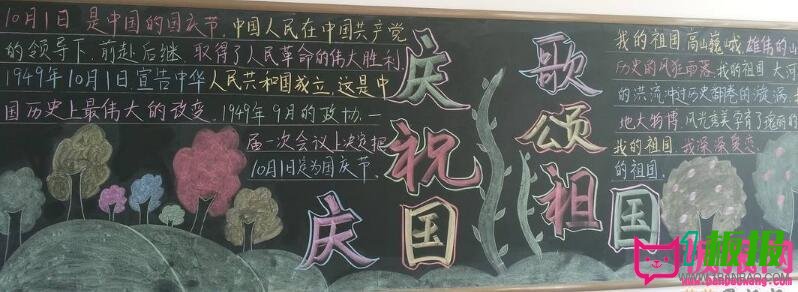 10月1日是中国的国庆节，中国人民在中国共产党
的领导下，前赴后继，取得了人民革命的伟大胜利，
1949年10月1日，宣告中华人民共和国成立，这是中
国历史上最伟大的改变，1949年9月的政协，一
届一次会议上决定把
10月1日定为国庆节。
庆祝
国庆
歌颂祖国
我的祖国，高山巍峨，雄伟的山
历史的风狂雨落，我的祖国，大河
的洪流冲过历史翻卷的漩涡，
地大物博，风光秀美，孕育了瑰丽的
我的祖国，我深深爱恋
的祖国。
板报
www.banbaowang.com